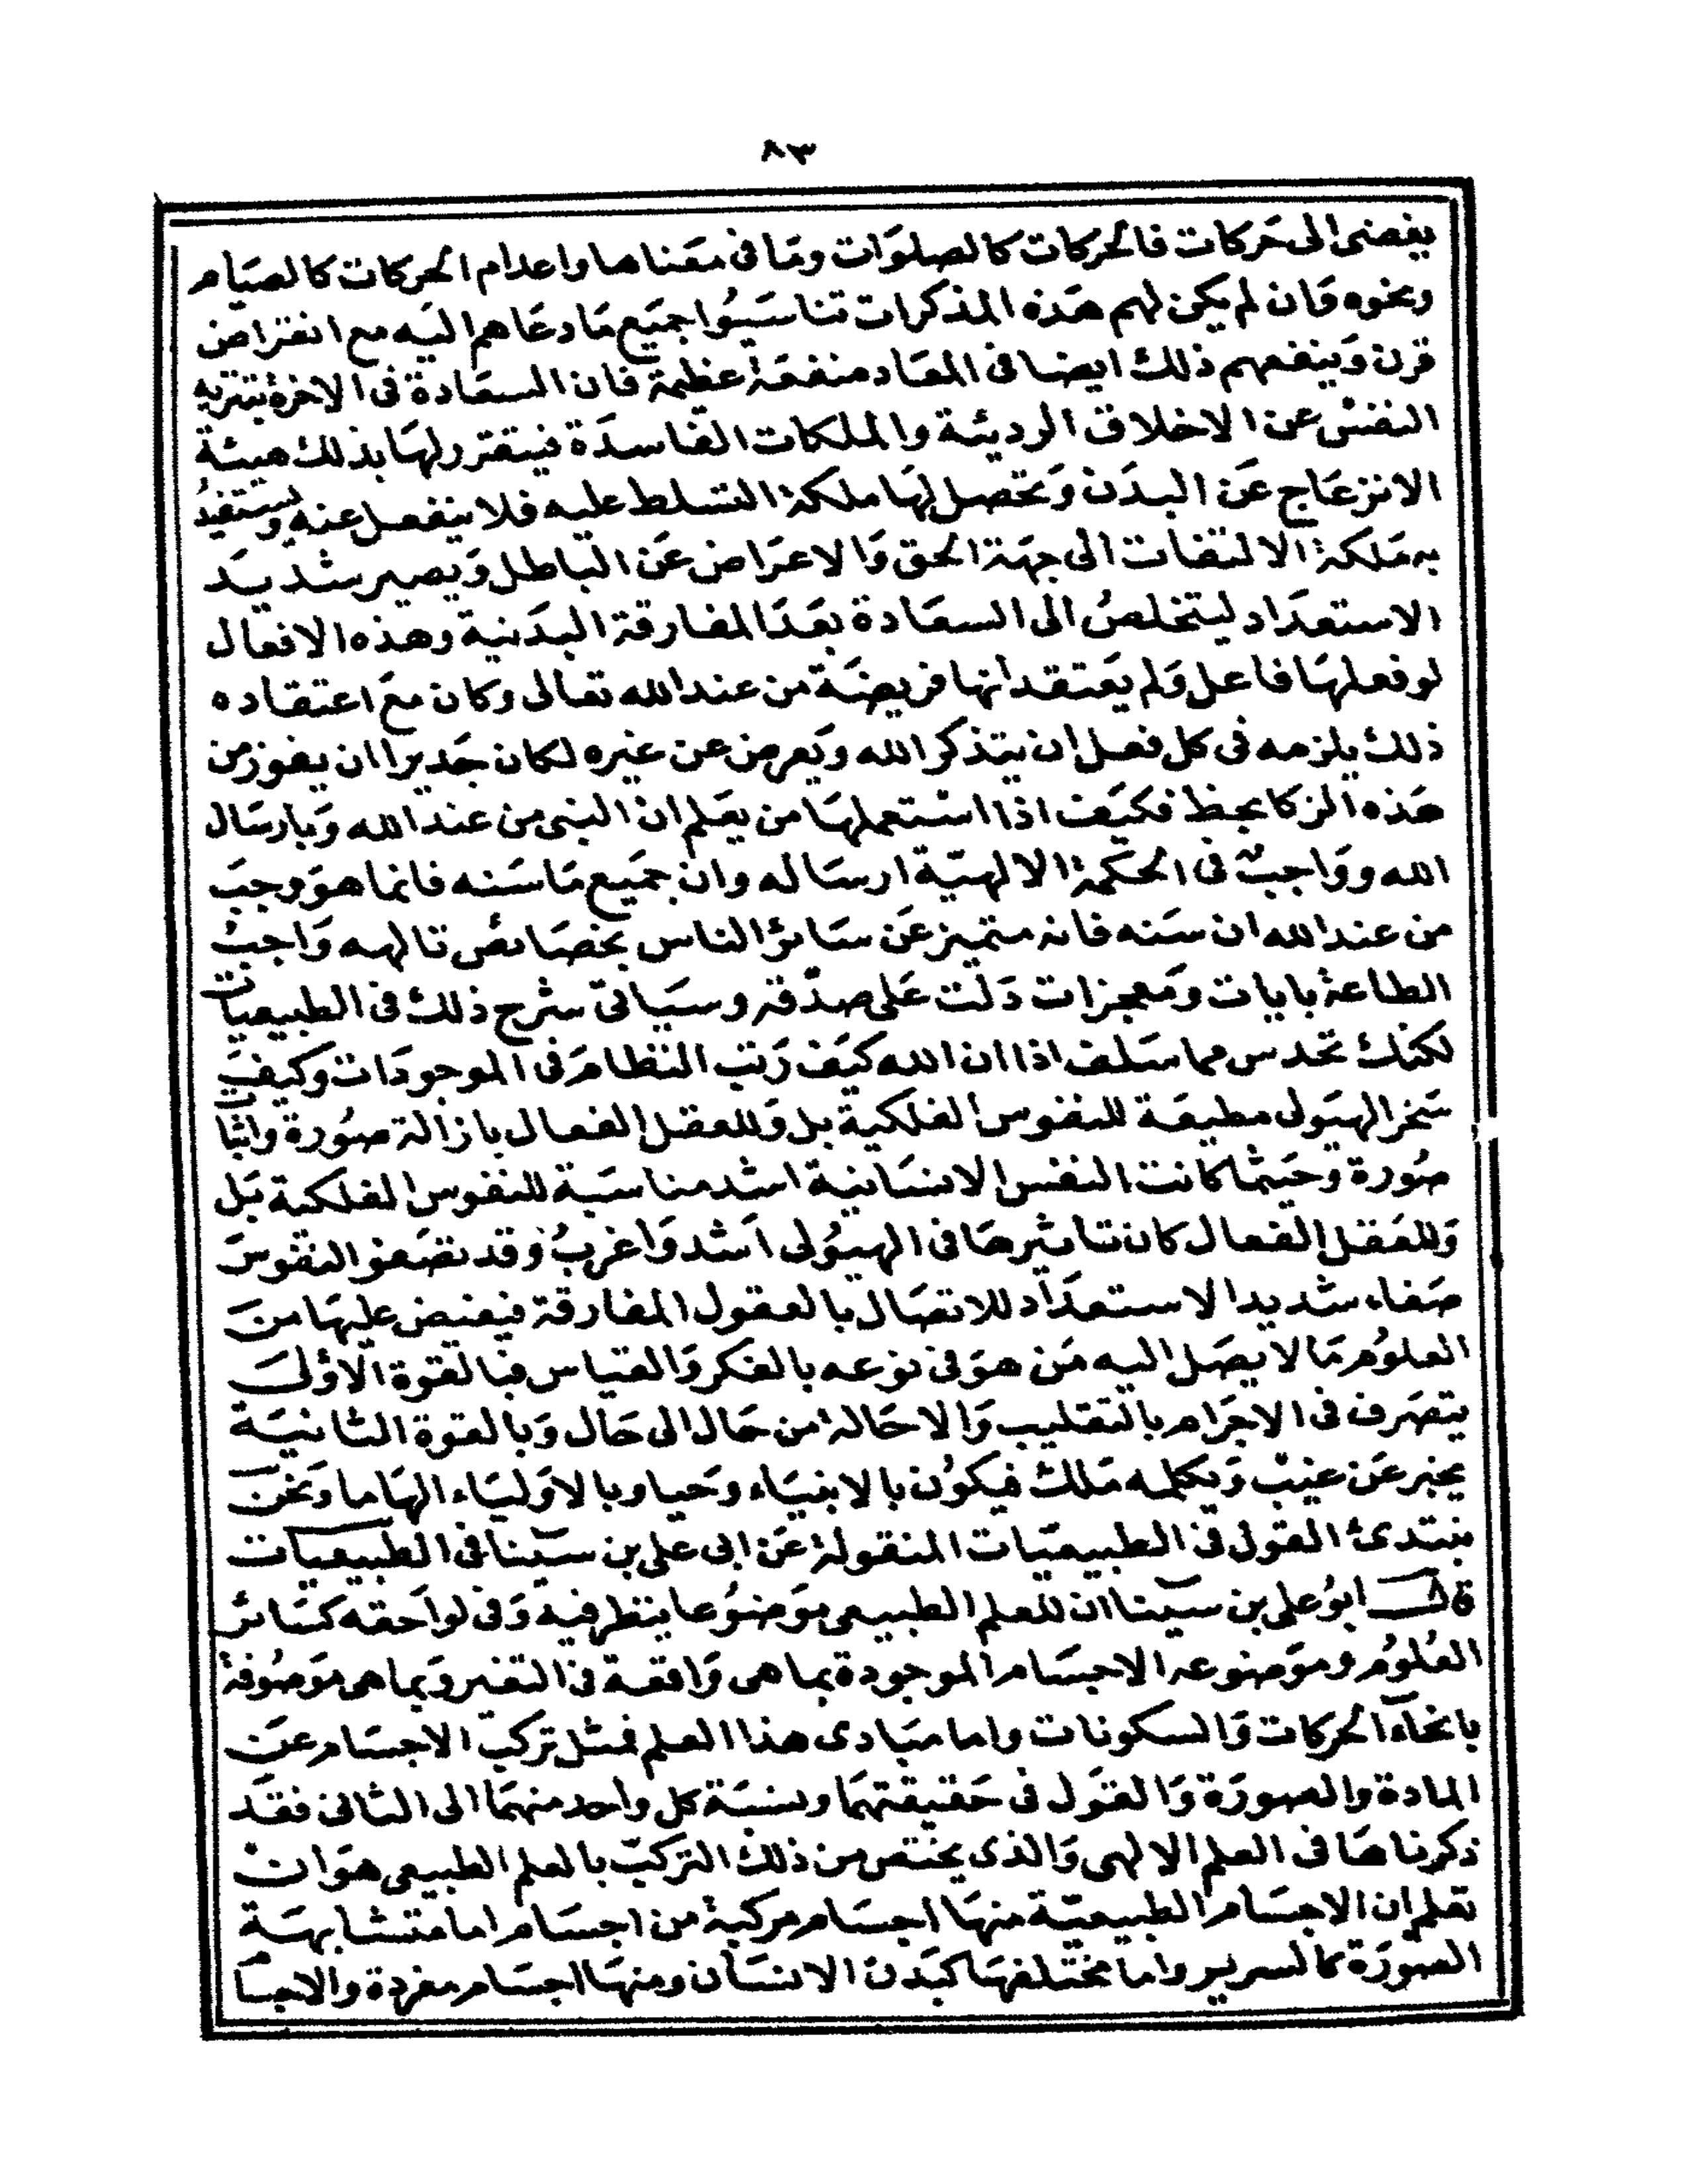 ٨٣
يفضى الى حركات فالحركات كالصلوات وما فى معناها واعدام الحركات كالصيام
ونحوه فان لم يكن لهم هذه المذكرات تناسوا جميع ما دعاهم اليه مع انقراض
قرن وينفعهم ذلك ايضا فى المعاد منفعة عظيمة فان السعادة فى الاخرة بتنزيه
النفس عن الاخلاق الرديئة والملكات الفاسدة فيتقرر لها بذلك هيئة
الانزعاج عن البدن وتحصل لها ملكة التسلط عليه فلا ينفعل عنه ويستفيد
به ملكة الالتفات الى جهة الحق والاعراض عن الباطل ويصير شديد
الاستعداد ليتخلص الى السعادة بعد المفارقة البدنية وهذه الافعال
لو فعلها فاعل ولم يعتقد انها فريضة من عند الله تعالى وكان مع اعتقاده
ذلك يلزمه فى كل فعل ان يتذكر الله ويعرض عن غيره لكان جديرا ان يفوز من
هذه الزكا بحظ فكيف اذا استعملها من يعلم ان النبى من عند الله وبارسال
الله وواجب فى الحكمة الالهية ارساله وان جميع ما سنه فانما هو وجب
من عند الله ان سنه فانه متميز عن سائر الناس بخصائص تالهه واجب
الطاعة بايات ومعجزات دلت على صدقه وسياتى شرح ذلك فى الطبيعيات
لكنك تحدس مما سلف اذا ان الله كيف رتب النظام فى الموجودات وكيف
سخر الهيولى مطيعة للنفوس الفلكية بل وللعقل الفعال بازالة صورة واثبات
صورة وحيثما كانت النفس الانسانية اشد مناسبة للنفوس الفلكية بل
وللعقل الفعال كان تاثيرها فى الهيولى اشد واغرب وقد تصفو النفوس
صفاء شديدا الاستعداد للاتصال بالعقول المفارقة فيفيض عليها من
العلوم ما لا يصل اليه من هو فى نوعه بالفكر والقياس فبالقوة الاولى
يتصرف فى الاجرام بالتقليب والاحالة من حال الى حال وبالقوة الثانية
يخبر عن غيب ويكلمه ملك فيكون بالانبياء وحيا وبالاولياء الهاما ونحن
نبتدئ القول فى الطبيعيات المنقولة عن ابى على بن سينا فى الطبيعيات
قال ابو على بن سينا ان للعلم الطبيعى موضوعا ينظر فيه وفى لواحقه كسائر
العلوم وموضوعه الاجسام الموجودة بما هى واقعة فى التغير وبما هى موصوفة
بانحاء الحركات والسكونات واما مبادى هذا العلم فمثل تركب الاجسام عن
المادة والصورة والقول فى حقيقتهما ونسبة كل واحد منهما الى الثانى فقد
ذكرناها فى العلم الالهى والذى يختص من ذلك التركب بالعلم الطبيعى هو ان
تعلم ان الاجسام الطبيعية منها اجسام مركبة من اجسام اما متشابهة
الصورة كالسرير واما مختلفها كبدن الانسان ومنها اجسام مفردة والاجسام